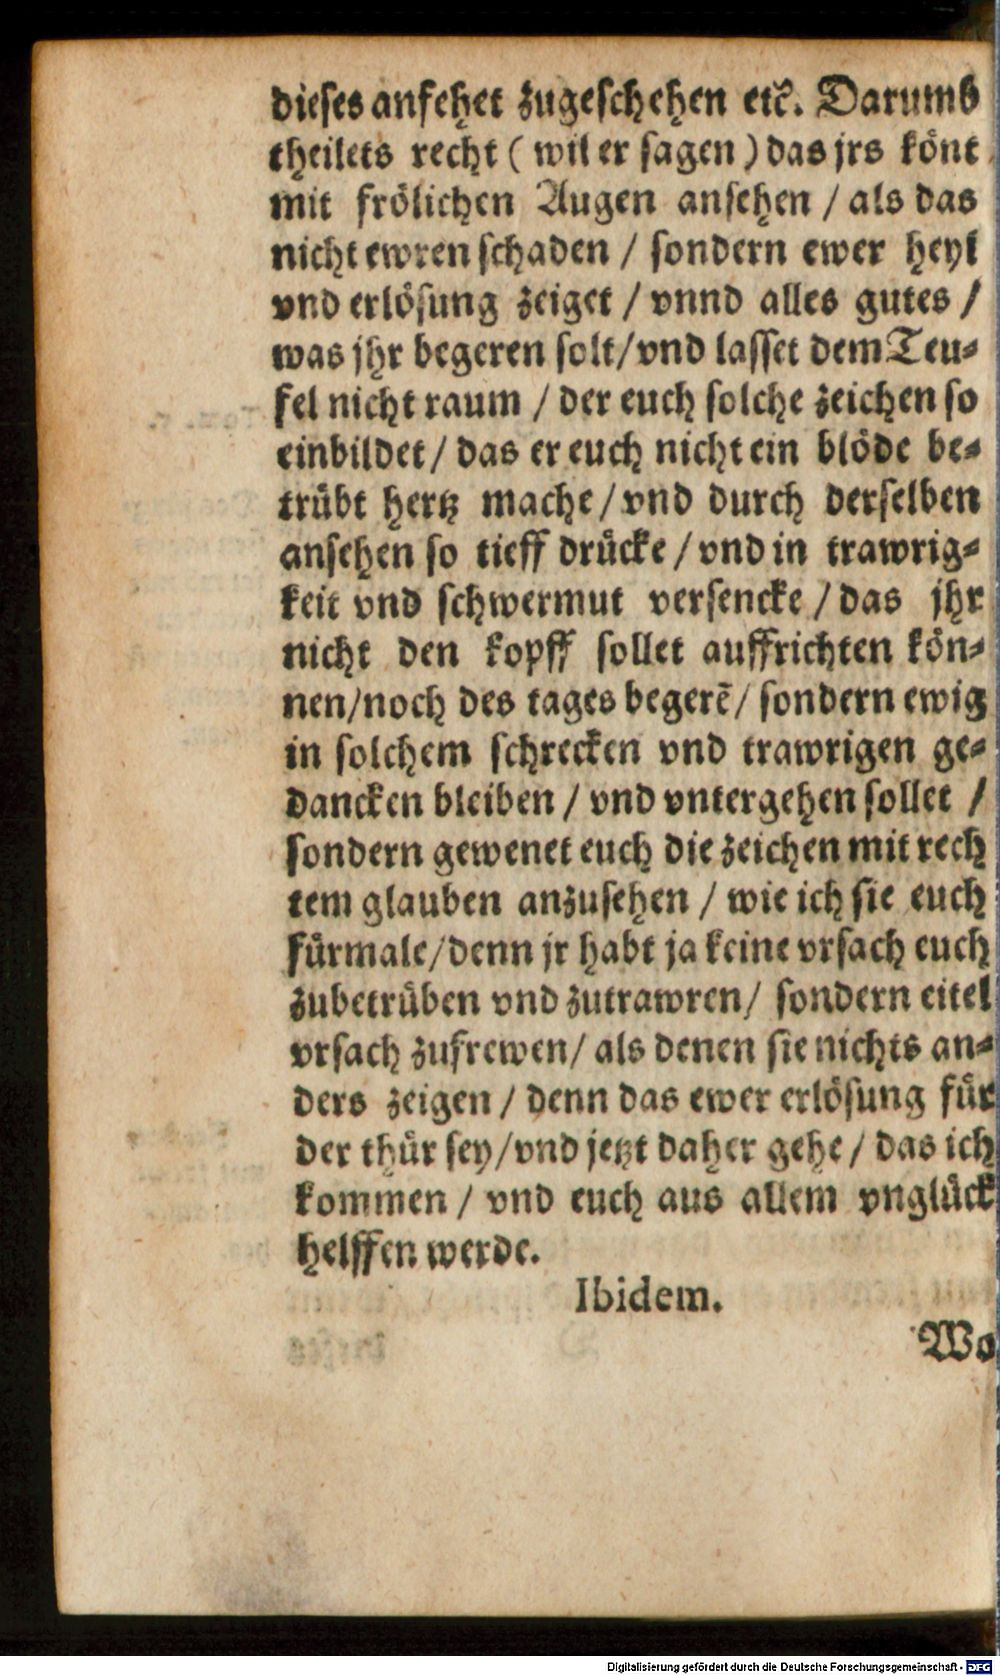 dieses anfehet zugeschehen etc̃. Darumb
theilets recht ( wil er sagen ) das jrs könt
mit frölichen Augen ansehen / als das
nicht ewren schaden / sondern ewer heyl
vnd erlösung zeiget / vnnd alles gutes /
was jhr begeren solt/ vnd lasset dem Teu-
fel nicht raum / der euch solche zeichen so
einbildet / das er euch nicht ein blöde be-
trübt hertz mache / vnd durch derselben
ansehen so tieff drücke / vnd in trawrig-
keit vnd schwermut versencke / das jhr
nicht den kopff sollet auffrichten kön-
nen/noch des tages begerẽ/ sondern ewig
in solchem schrecken vnd trawrigen ge-
dancken bleiben / vnd vntergehen sollet /
sondern gewenet euch die zeichen mit rech
tem glauben anzusehen / wie ich sie euch
fürmale/denn jr habt ja keine vrsach euch
zubetrüben vnd zutrawren/ sondern eitel
vrsach zufrewen/ als denen sie nichts an-
ders zeigen / denn das ewer erlösung für
der thür sey/vnd jetzt daher gehe / das ich
kommen / vnd euch aus allem vnglück
helffen werde.
Ibidem.
Wo
Digitalisierung gefördert durch die Deutsche Forschungsgemeinschaft - DFG